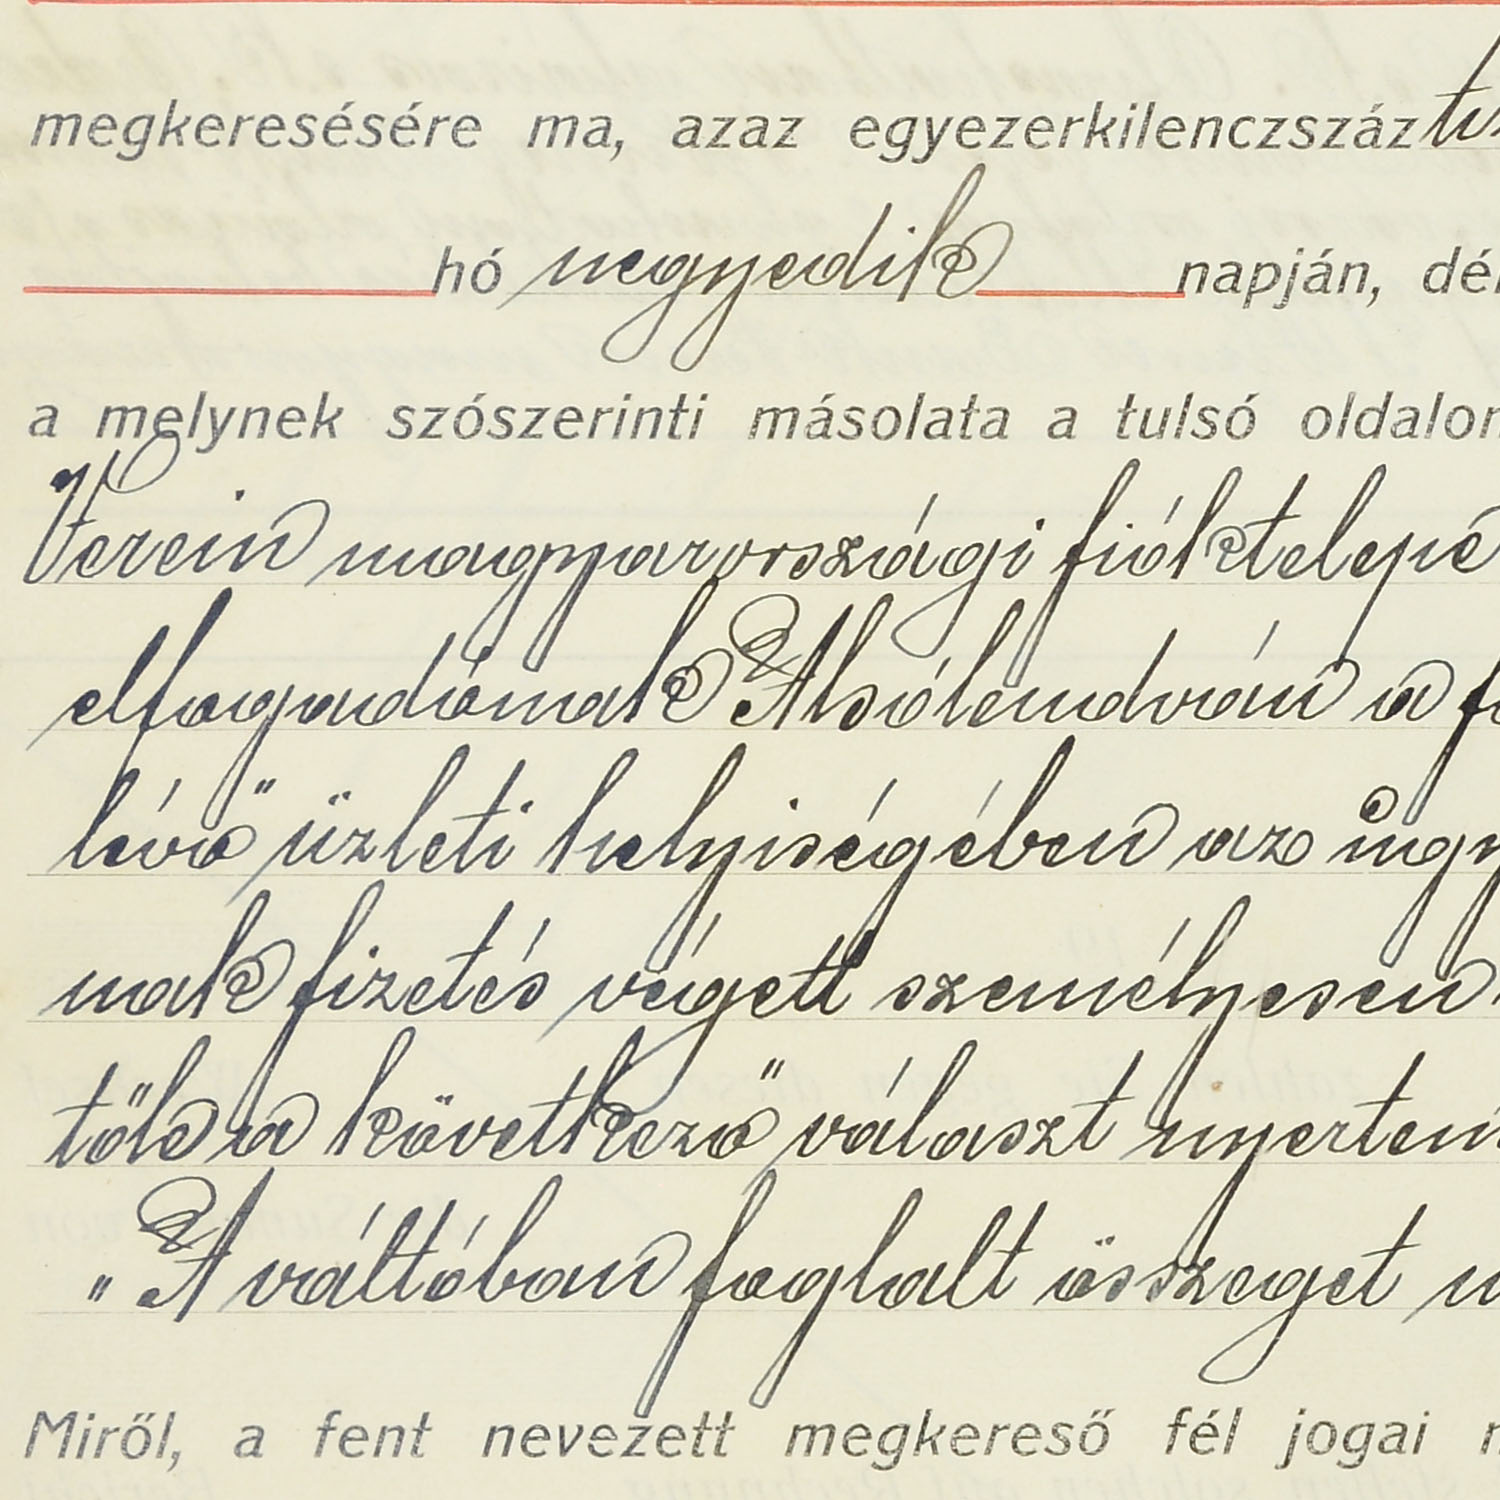 megkeresésére ma, azaz egyezerkilenczszáz
hó negyedik napján, dél
a melynek szószerinti másolata a tulsó oldalon
Verein magyarországi fióktelepe
elfogadómak Alsólendván a
lévő üzleti helyiségében az ügy
nak fizetés végett személyesen
tőle a következő választ nyertem
"A váltóban foglalt összeget
Miről, a fent nevezett megkereső fél jogai